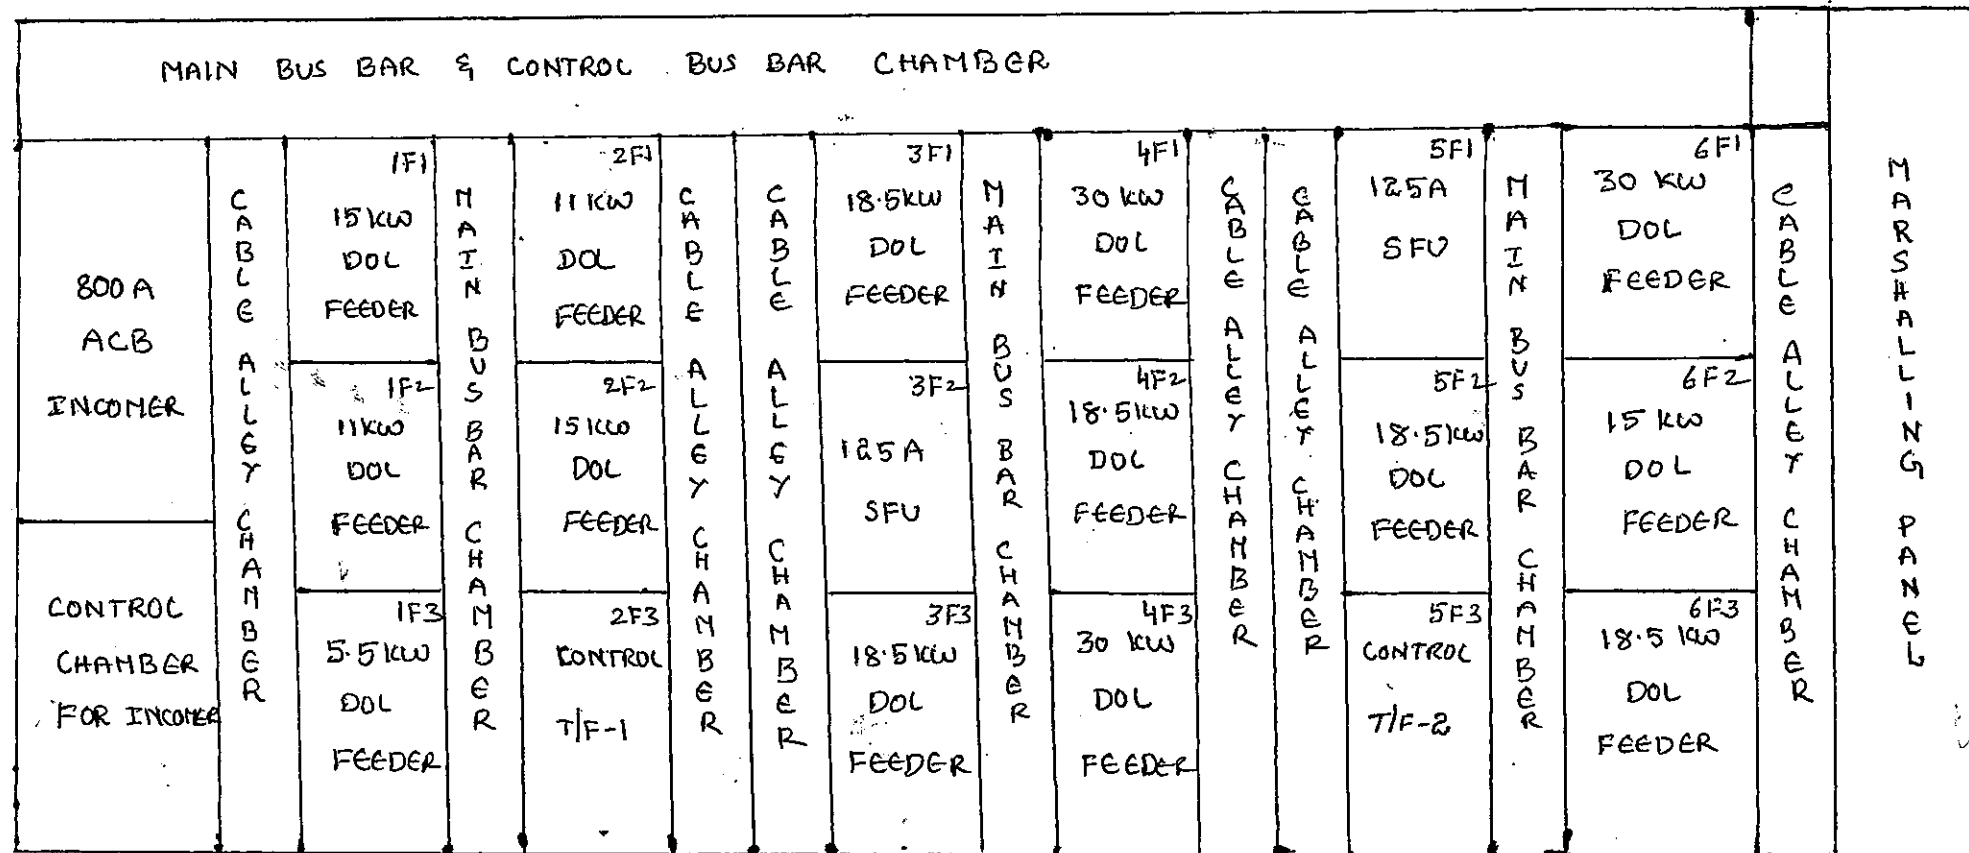 MAIN BUS BAR & CONTROL BUS BAR CHAMBER
800 A
ACB
INCOMER
CONTROL
CHAMBER
FOR INCOMER
CABLE ALLEY CHAMBER
1F1
15 KW
DOL
FEEDER
1F2
11 KW
DOL
FEEDER
1F3
5.5 KW
DOL
FEEDER
MAIN BUS BAR CHAMBER
2F1
11 KW
DOL
FEEDER
2F2
15 KW
DOL
FEEDER
2F3
CONTROL
T/F-1
CABLE ALLEY CHAMBER
CABLE ALLEY CHAMBER
3F1
18.5 KW
DOL
FEEDER
3F2
125 A
SFU
3F3
18.5 KW
DOL
FEEDER
MAIN BUS BAR CHAMBER
4F1
30 KW
DOL
FEEDER
4F2
18.5 KW
DOL
FEEDER
4F3
30 KW
DOL
FEEDER
CABLE ALLEY CHAMBER
CABLE ALLEY CHAMBER
5F1
125A
SFU
5F2
18.5 KW
DOL
FEEDER
5F3
CONTROL
T/F-2
MAIN BUS BAR CHAMBER
6F1
30 KW
DOL
FEEDER
6F2
15 KW
DOL
FEEDER
6F3
18.5 KW
DOL
FEEDER
CABLE ALLEY CHAMBER
MARSHALLING PANEL